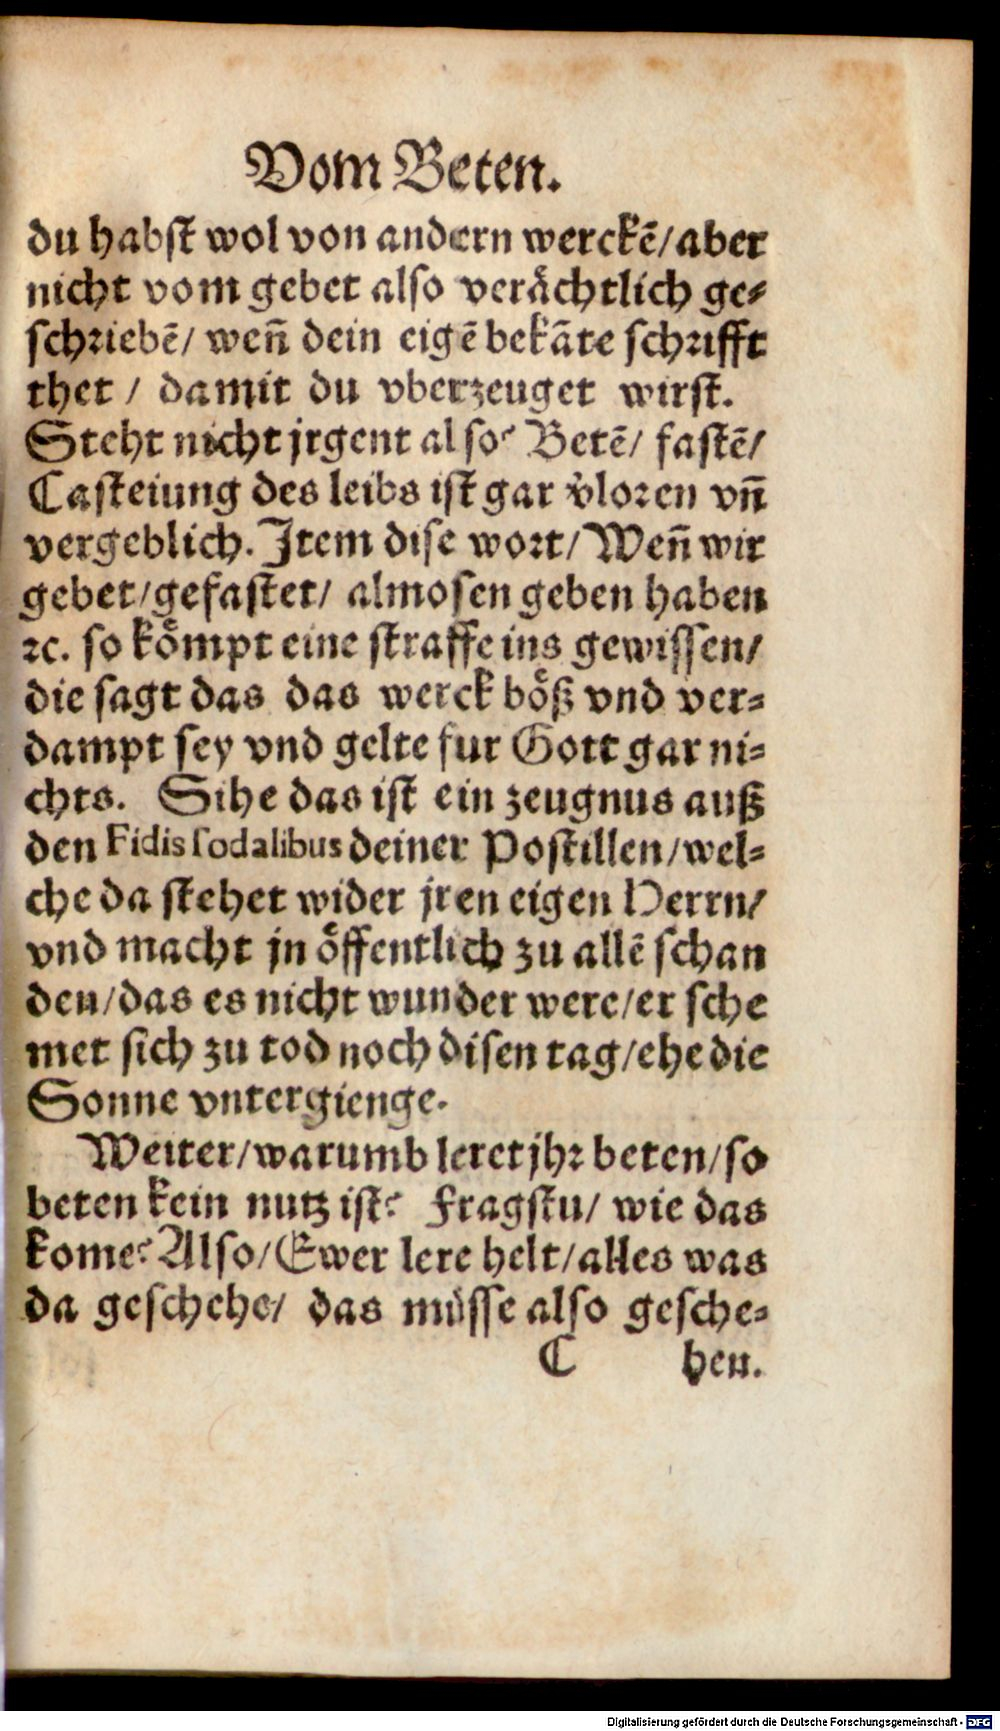 Vom Beten.
du habst wol von andern werckē/aber
nicht vom gebet also verächtlich ge-
schriebē/ weñ dein eigē bekāte schrifft
thet / damit du vberzeuget wirst.
Steht nicht jrgent also? Betē/ fastē/
Casteiung des leibs ist gar v̈loren vñ
vergeblich. Item dise wort/ Weñ wir
gebet/gefastet/ almosen geben haben
ꝛc. so kömpt eine straffe ins gewissen/
die sagt das das werck böß vnd ver-
dampt sey vnd gelte fur Gott gar ni-
chts. Sihe das ist ein zeugnus auß
den Fidis sodalibus deiner Postillen/wel-
che da stehet wider jren eigen Herrn/
vnd macht jn öffentlich zu allē schan
den/das es nicht wunder were/er sche
met sich zu tod noch disen tag/ehe die
Sonne vntergienge.
Weiter/warumb leret jhr beten/so
beten kein nutz ist? Fragstu/ wie das
kome? Also/Ewer lere helt/alles was
da geschehe/ das müsse also gesche-
C hen.
Digitalisierung gefördert durch die Deutsche Forschungsgemeinschaft - DFG